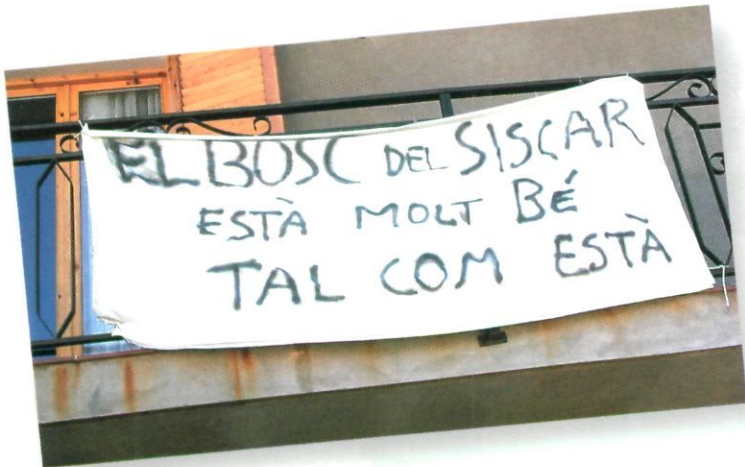 EL BOSC DEL SISCAR
ESTÀ MOLT BÉ
TAL COM ESTÀ